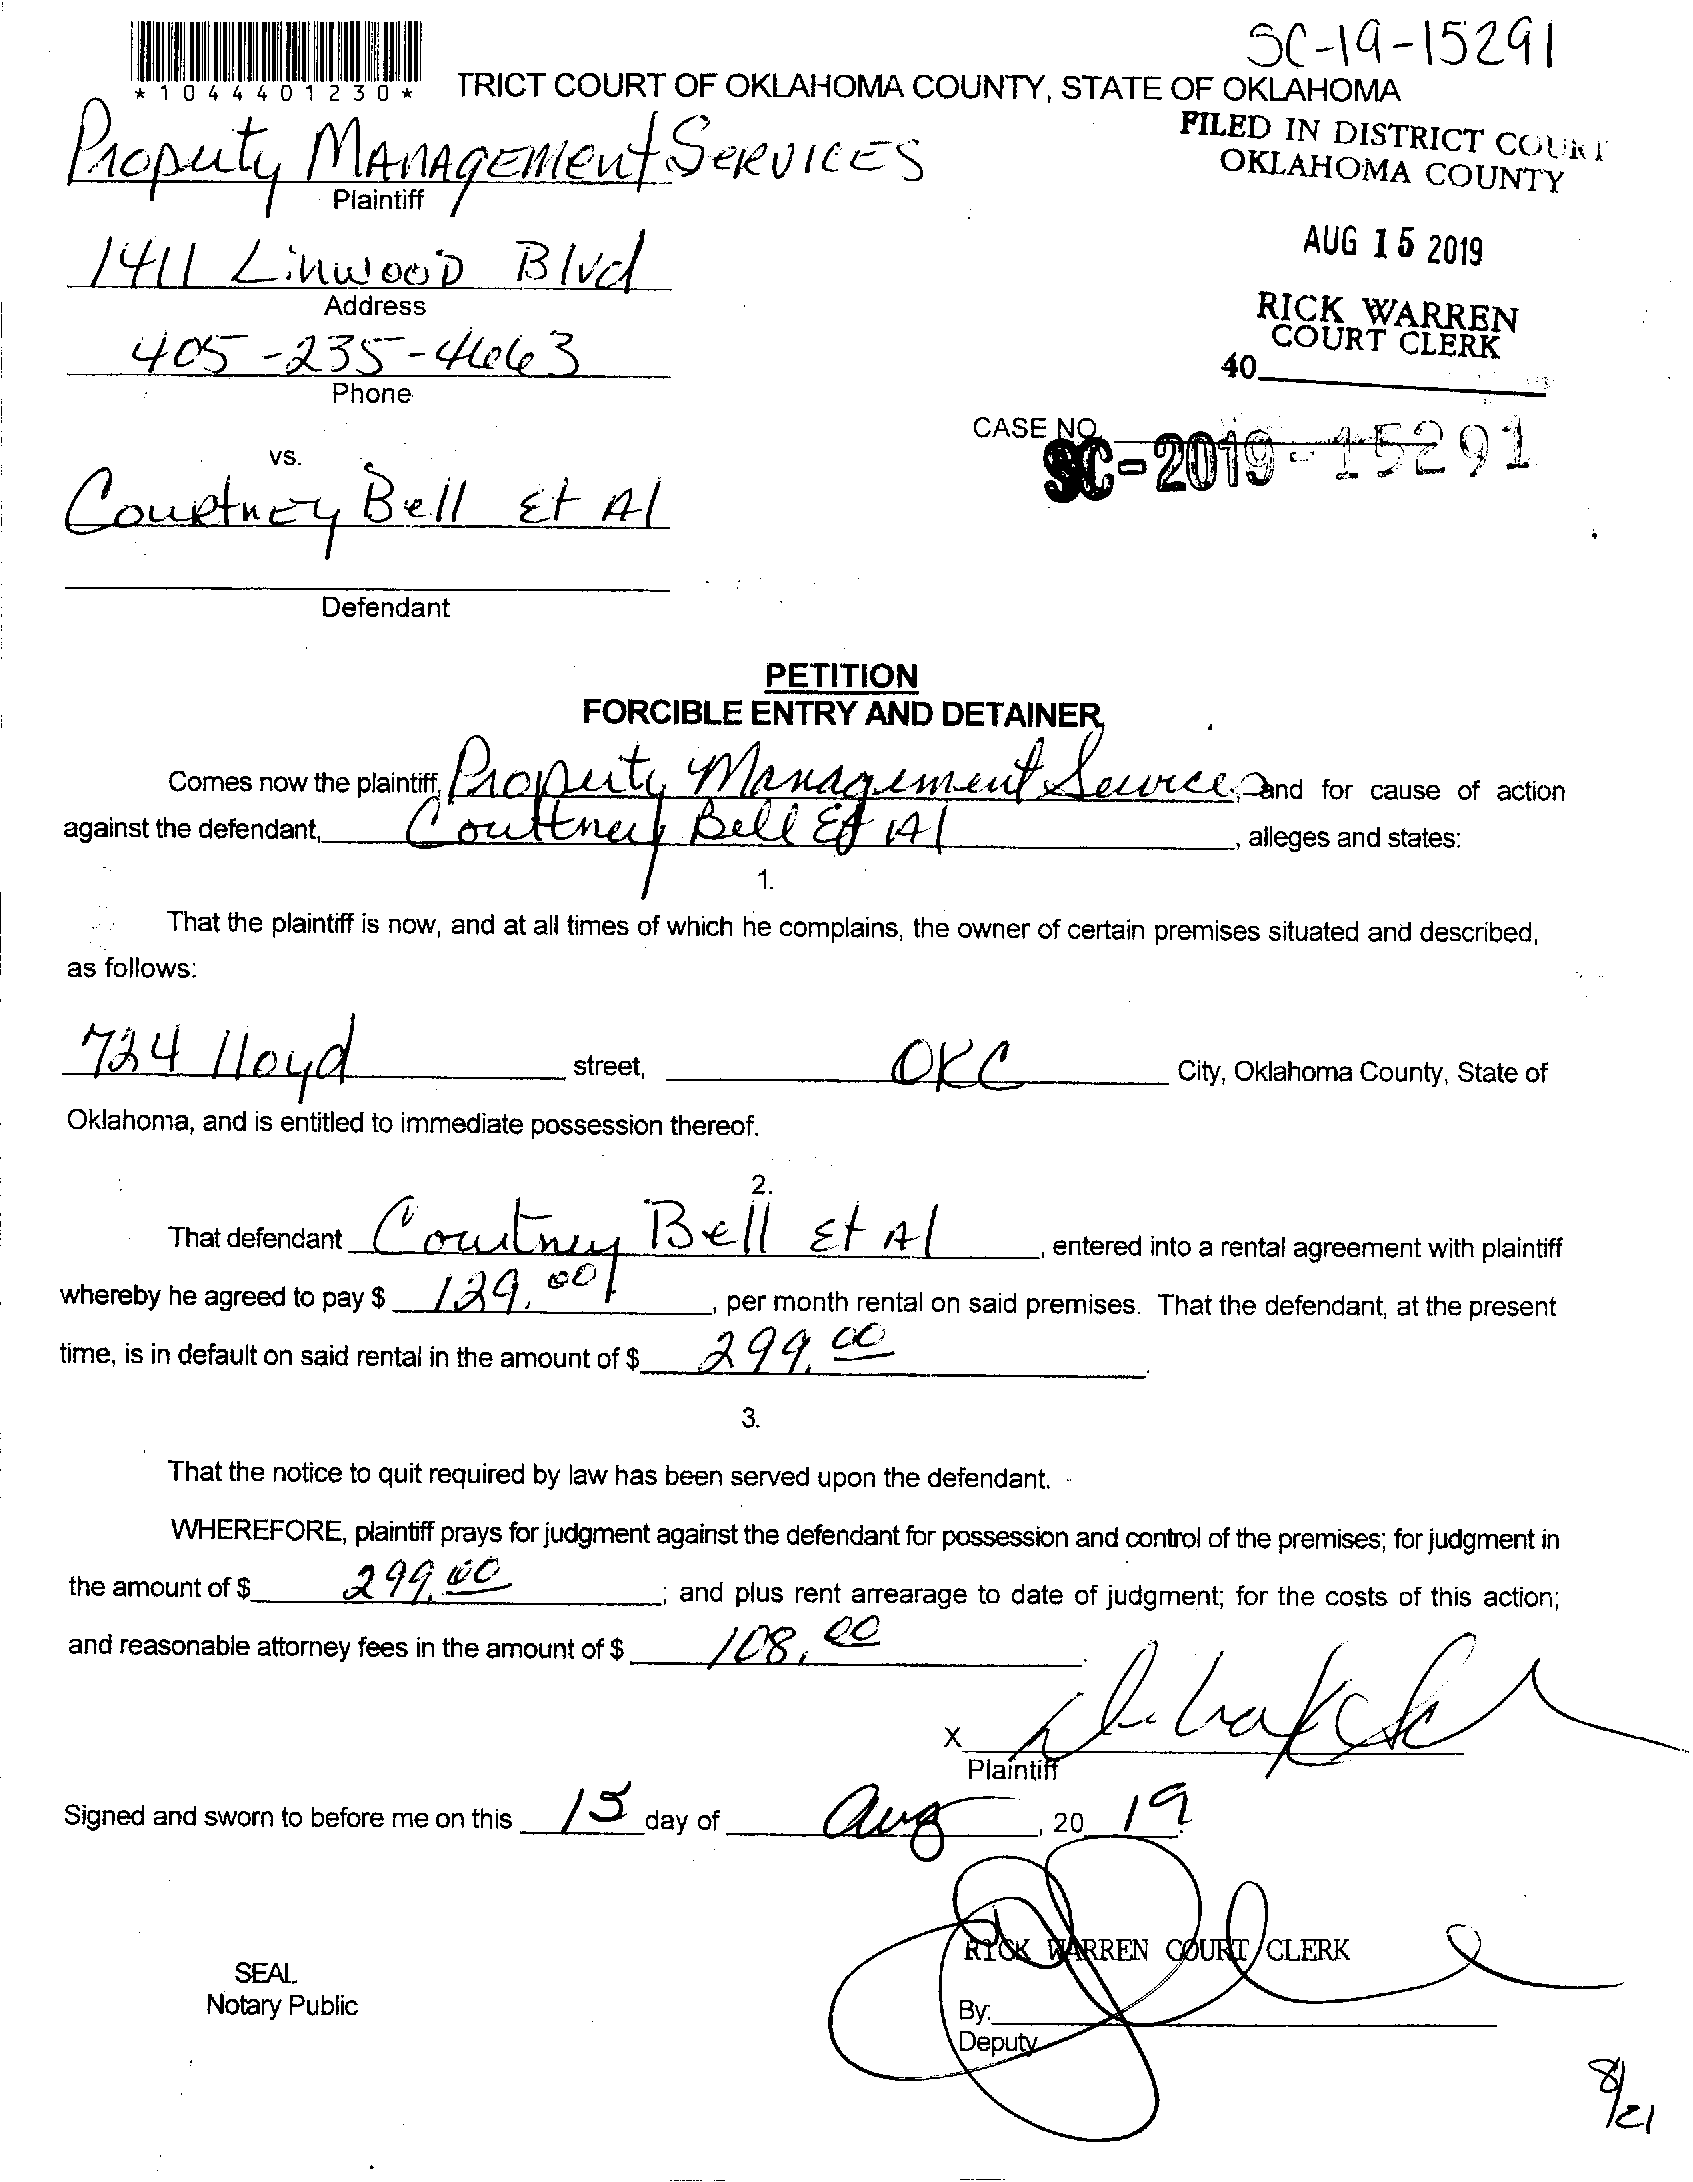 SC-19-15291
*1044401230*
TRICT COURT OF OKLAHOMA COUNTY, STATE OF OKLAHOMA
Property Management Services
Plaintiff
FILED IN DISTRICT COURT
OKLAHOMA COUNTY
1411 Linwood Blvd
Address
AUG 15 2019
405-235-4663
Phone
RICK WARREN
COURT CLERK
40
CASE NO.
SC-2019-15291
vs.
Courtney Bell Et Al
Defendant
PETITION
FORCIBLE ENTRY AND DETAINER
Comes now the plaintiff, Property Management Services, and for cause of action
against the defendant, Courtney Bell Et Al, alleges and states:
1.
That the plaintiff is now, and at all times of which he complains, the owner of certain premises situated and described,
as follows:
724 lloyd street, OKC City, Oklahoma County, State of
Oklahoma, and is entitled to immediate possession thereof.
2.
That defendant Courtney Bell Et Al, entered into a rental agreement with plaintiff
whereby he agreed to pay $ 129.00, per month rental on said premises. That the defendant, at the present
time, is in default on said rental in the amount of $ 299.00
3.
That the notice to quit required by law has been served upon the defendant.
WHEREFORE, plaintiff prays for judgment against the defendant for possession and control of the premises; for judgment in
the amount of $ 299.00; and plus rent arrearage to date of judgment; for the costs of this action;
and reasonable attorney fees in the amount of $ 108.00.
X
Plaintiff
Signed and sworn to before me on this 15 day of Aug, 20 19.
RICK WARREN COURT CLERK
SEAL
Notary Public
By:
Deputy
8/21